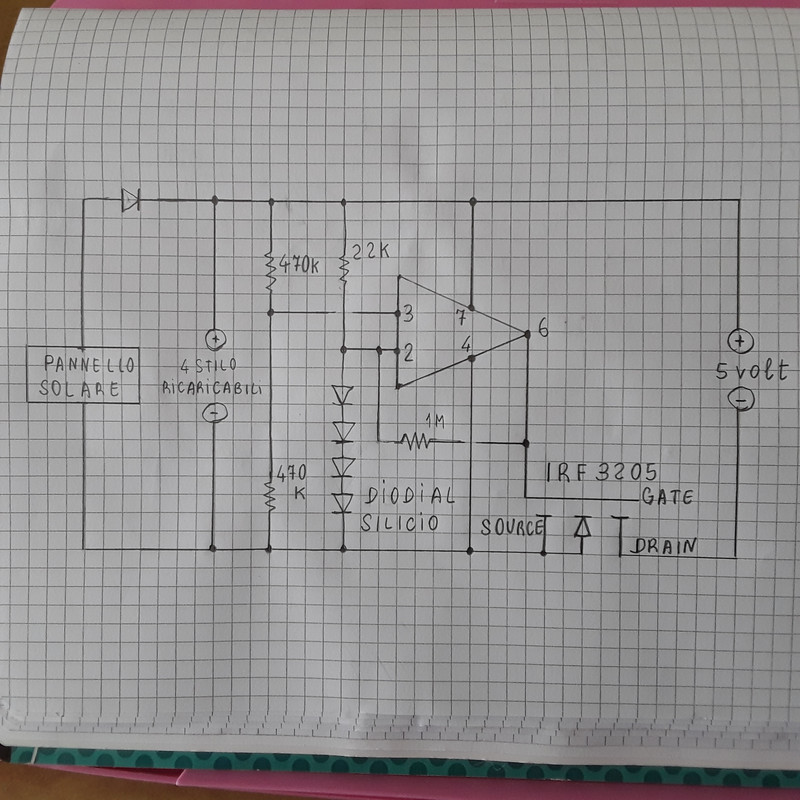 470K
22K
3
7
6
2
4
PANNELLO
SOLARE
+
4 STILO
RICARICABILI
-
+
5 volt
-
1M
470
K
DIODI AL
SILICIO
IRF 3205
GATE
SOURCE
DRAIN